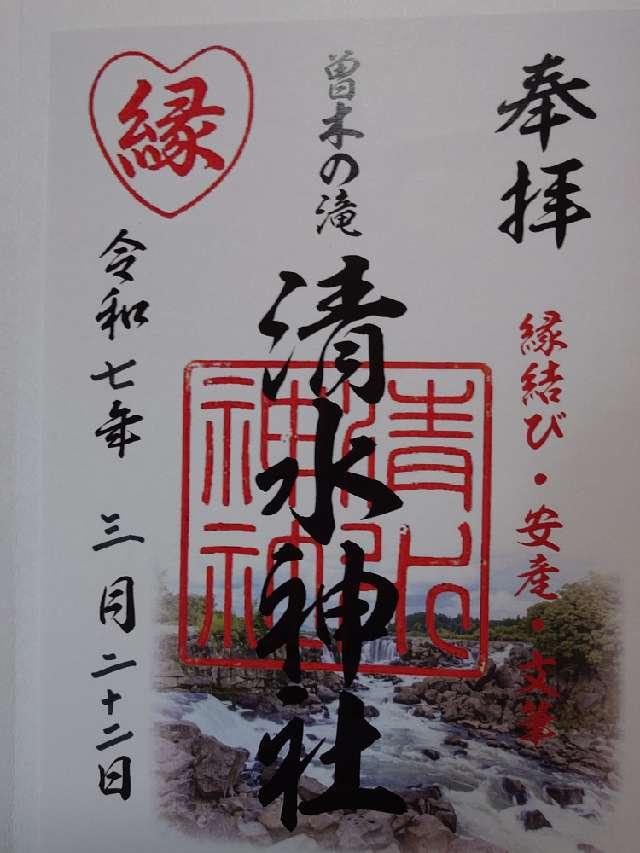 奉拝
縁結び・安産・文筆
曽木の滝
清水神社
縁
令和七年 三月二十二日